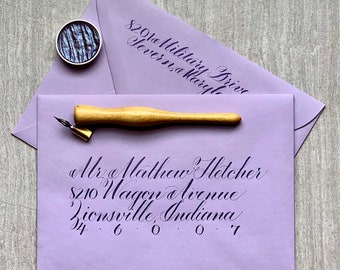 8201 Military Drive
Severn, Maryla
Mr. Mathew Fletcher
8210 Wagon Avenue
Zionsville, Indiana
4 · 6 · 0 · 0 · 7